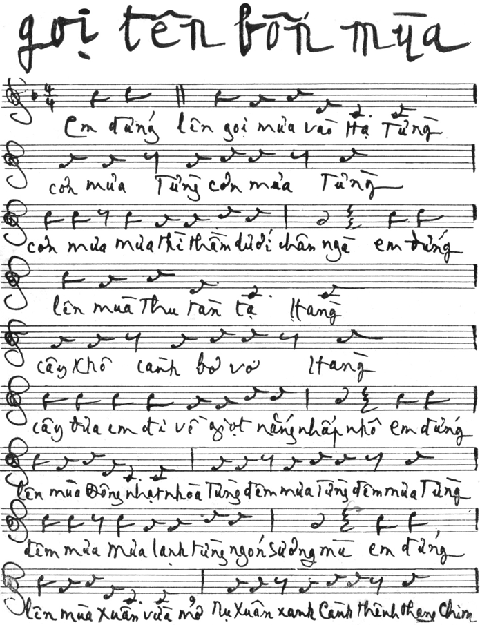 gọi tên bốn mùa
Em đứng lên gọi mưa vào Hạ Từng
cơn mưa Từng cơn mưa Từng
cơn mưa mưa thì thầm dưới chân ngà em đứng
lên mùa Thu tàn tạ Hàng
cây khô cành bơ vơ Hàng
cây đưa em đi về giọt nắng nhấp nhô em đứng
lên mùa Đông nhạt nhòa Từng đêm mưa Từng đêm mưa Từng
đêm mưa mưa lạnh từng ngón sương mù em đứng
lên mùa Xuân vừa mở Nụ xuân xanh Cành thênh thang Chim